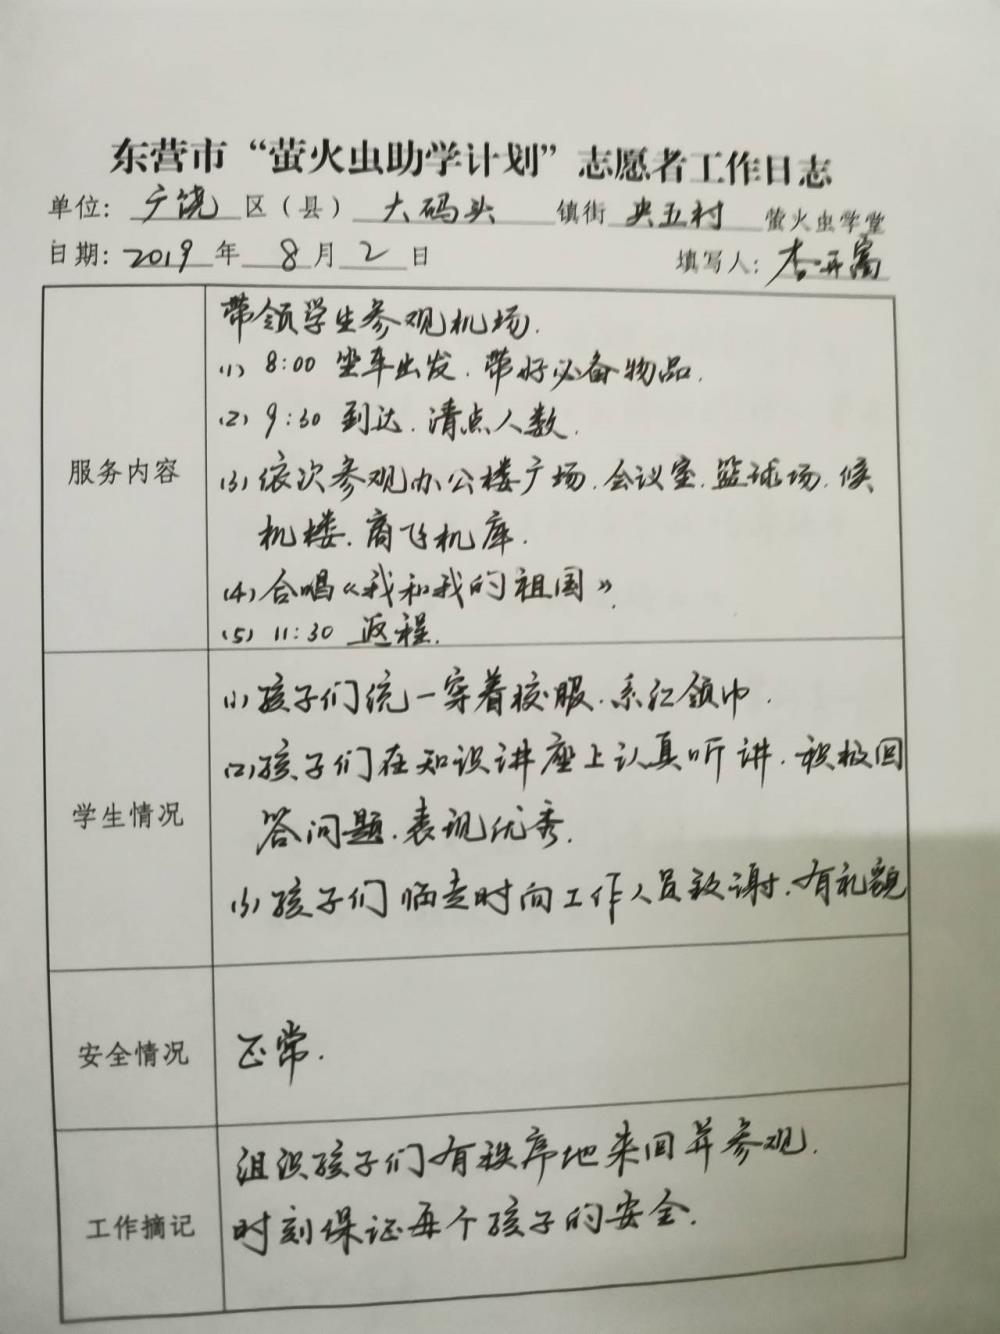 东营市“萤火虫助学计划”志愿者工作日志
单位：广饶区（县）大码头镇街央五村萤火虫学堂
日期：2019年8月2日 填写人：
带领学生参观机场.
(1) 8:00 坐车出发.带好必备物品.
(2) 9:30 到达.清点人数.
服务内容
(3) 依次参观办公楼广场.会议室.篮球场.候
机楼.商飞机库.
(4) 合唱《我和我的祖国》.
(5) 11:30 返程.
(1) 孩子们统一穿着校服.系红领巾.
(2) 孩子们在知识讲座上认真听讲.积极回
学生情况
答问题.表现优秀.
(3) 孩子们临走时向工作人员致谢.有礼貌
安全情况
正常.
组织孩子们有秩序地来回并参观.
工作摘记
时刻保证每个孩子的安全.